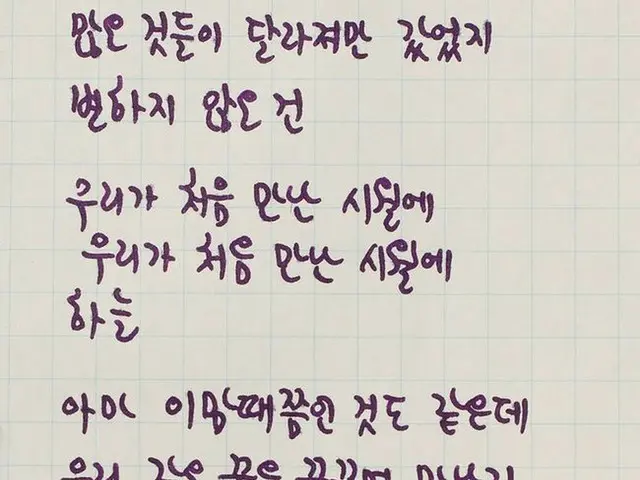 많은 것들이 달라져만 갔었지
변하지 않은 건
우리가 처음 만난 시월에
우리가 처음 만난 시월에
하늘
아마 이맘때쯤인 것도 같은데
우리 같은